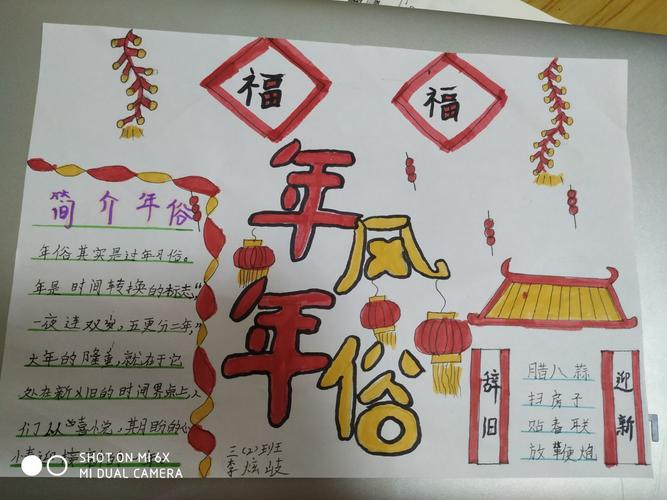 福
福
年风年俗
简介年俗
年俗其实是过年习俗。
年是时间转换的标志，“
一夜连双岁，五更分二年，”
大年的隆重，就在于它
处在新义旧的时间界点上，
们从
三(2)班
李炫歧
辞旧
腊八蒜
扫房子
贴春联
放鞭炮
迎新
SHOT ON MI 6X
MI DUAL CAMERA